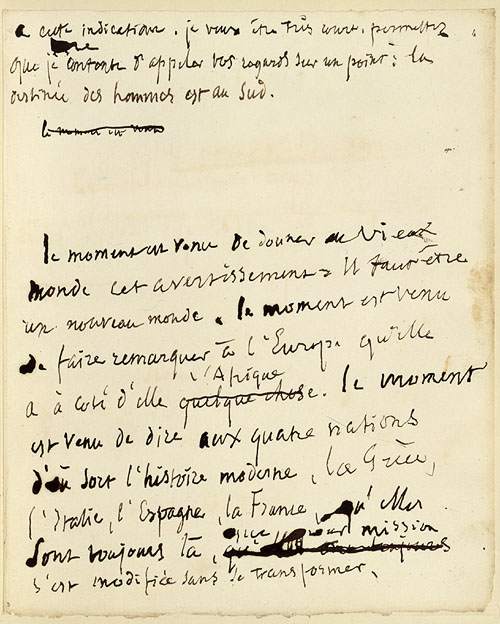 à cette indication. je veux être très court. permettez
que je me contente d'appeler vos regards sur un point : la
destinée des hommes est au Sud.
le moment est venu
le moment est venu de donner au vieux
monde cet avertissement : il faut être
un nouveau monde. le moment est venu
de faire remarquer à l'Europe qu'elle
a à côté d'elle quelque chose l'Afrique. le moment
est venu de dire aux quatre nations
d'où sort l'histoire moderne, la Grèce,
l'Italie, l'Espagne, la France, qu'elles
sont toujours là, que leur mission
s'est modifiée sans se transformer,